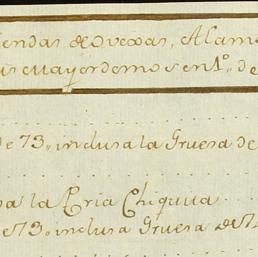 iendas de Ovexas, Alam
us mayordomos en 1º. de
de 73. inclusa la Gruesa de
sa la Cria Chiquita
e 73. inclusa Gruesa de 7